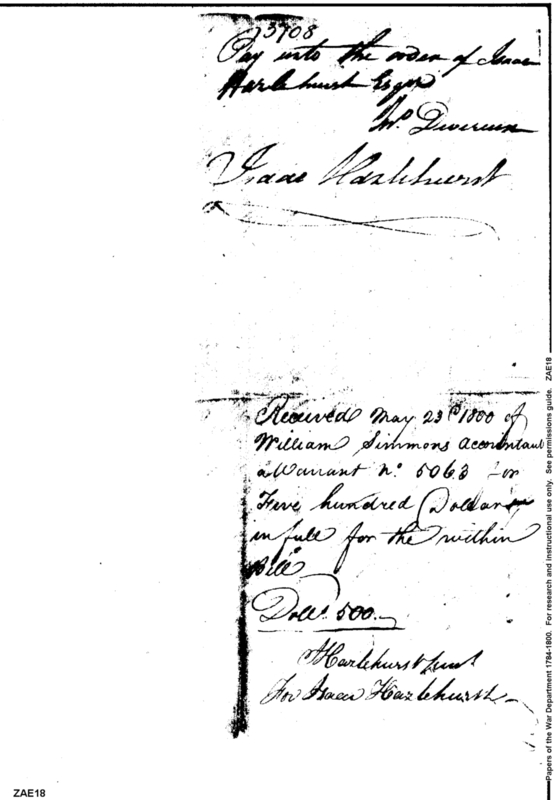 3708
Pay unto the order of Isaac
Hazlehurst Esqr
Devereux
Isaac Hazlehurst
Received May 23d 1800 of
William Simmons Accountant
a Warrant No. 5063 for
Five hundred Dollars
in full for the within
Bill
Dolls. 500.
Hazlehurst
For Isaac Hazlehurst
Papers of the War Department 1784-1800. For research and instructional use only. See permissions guide. ZAE18
ZAE18